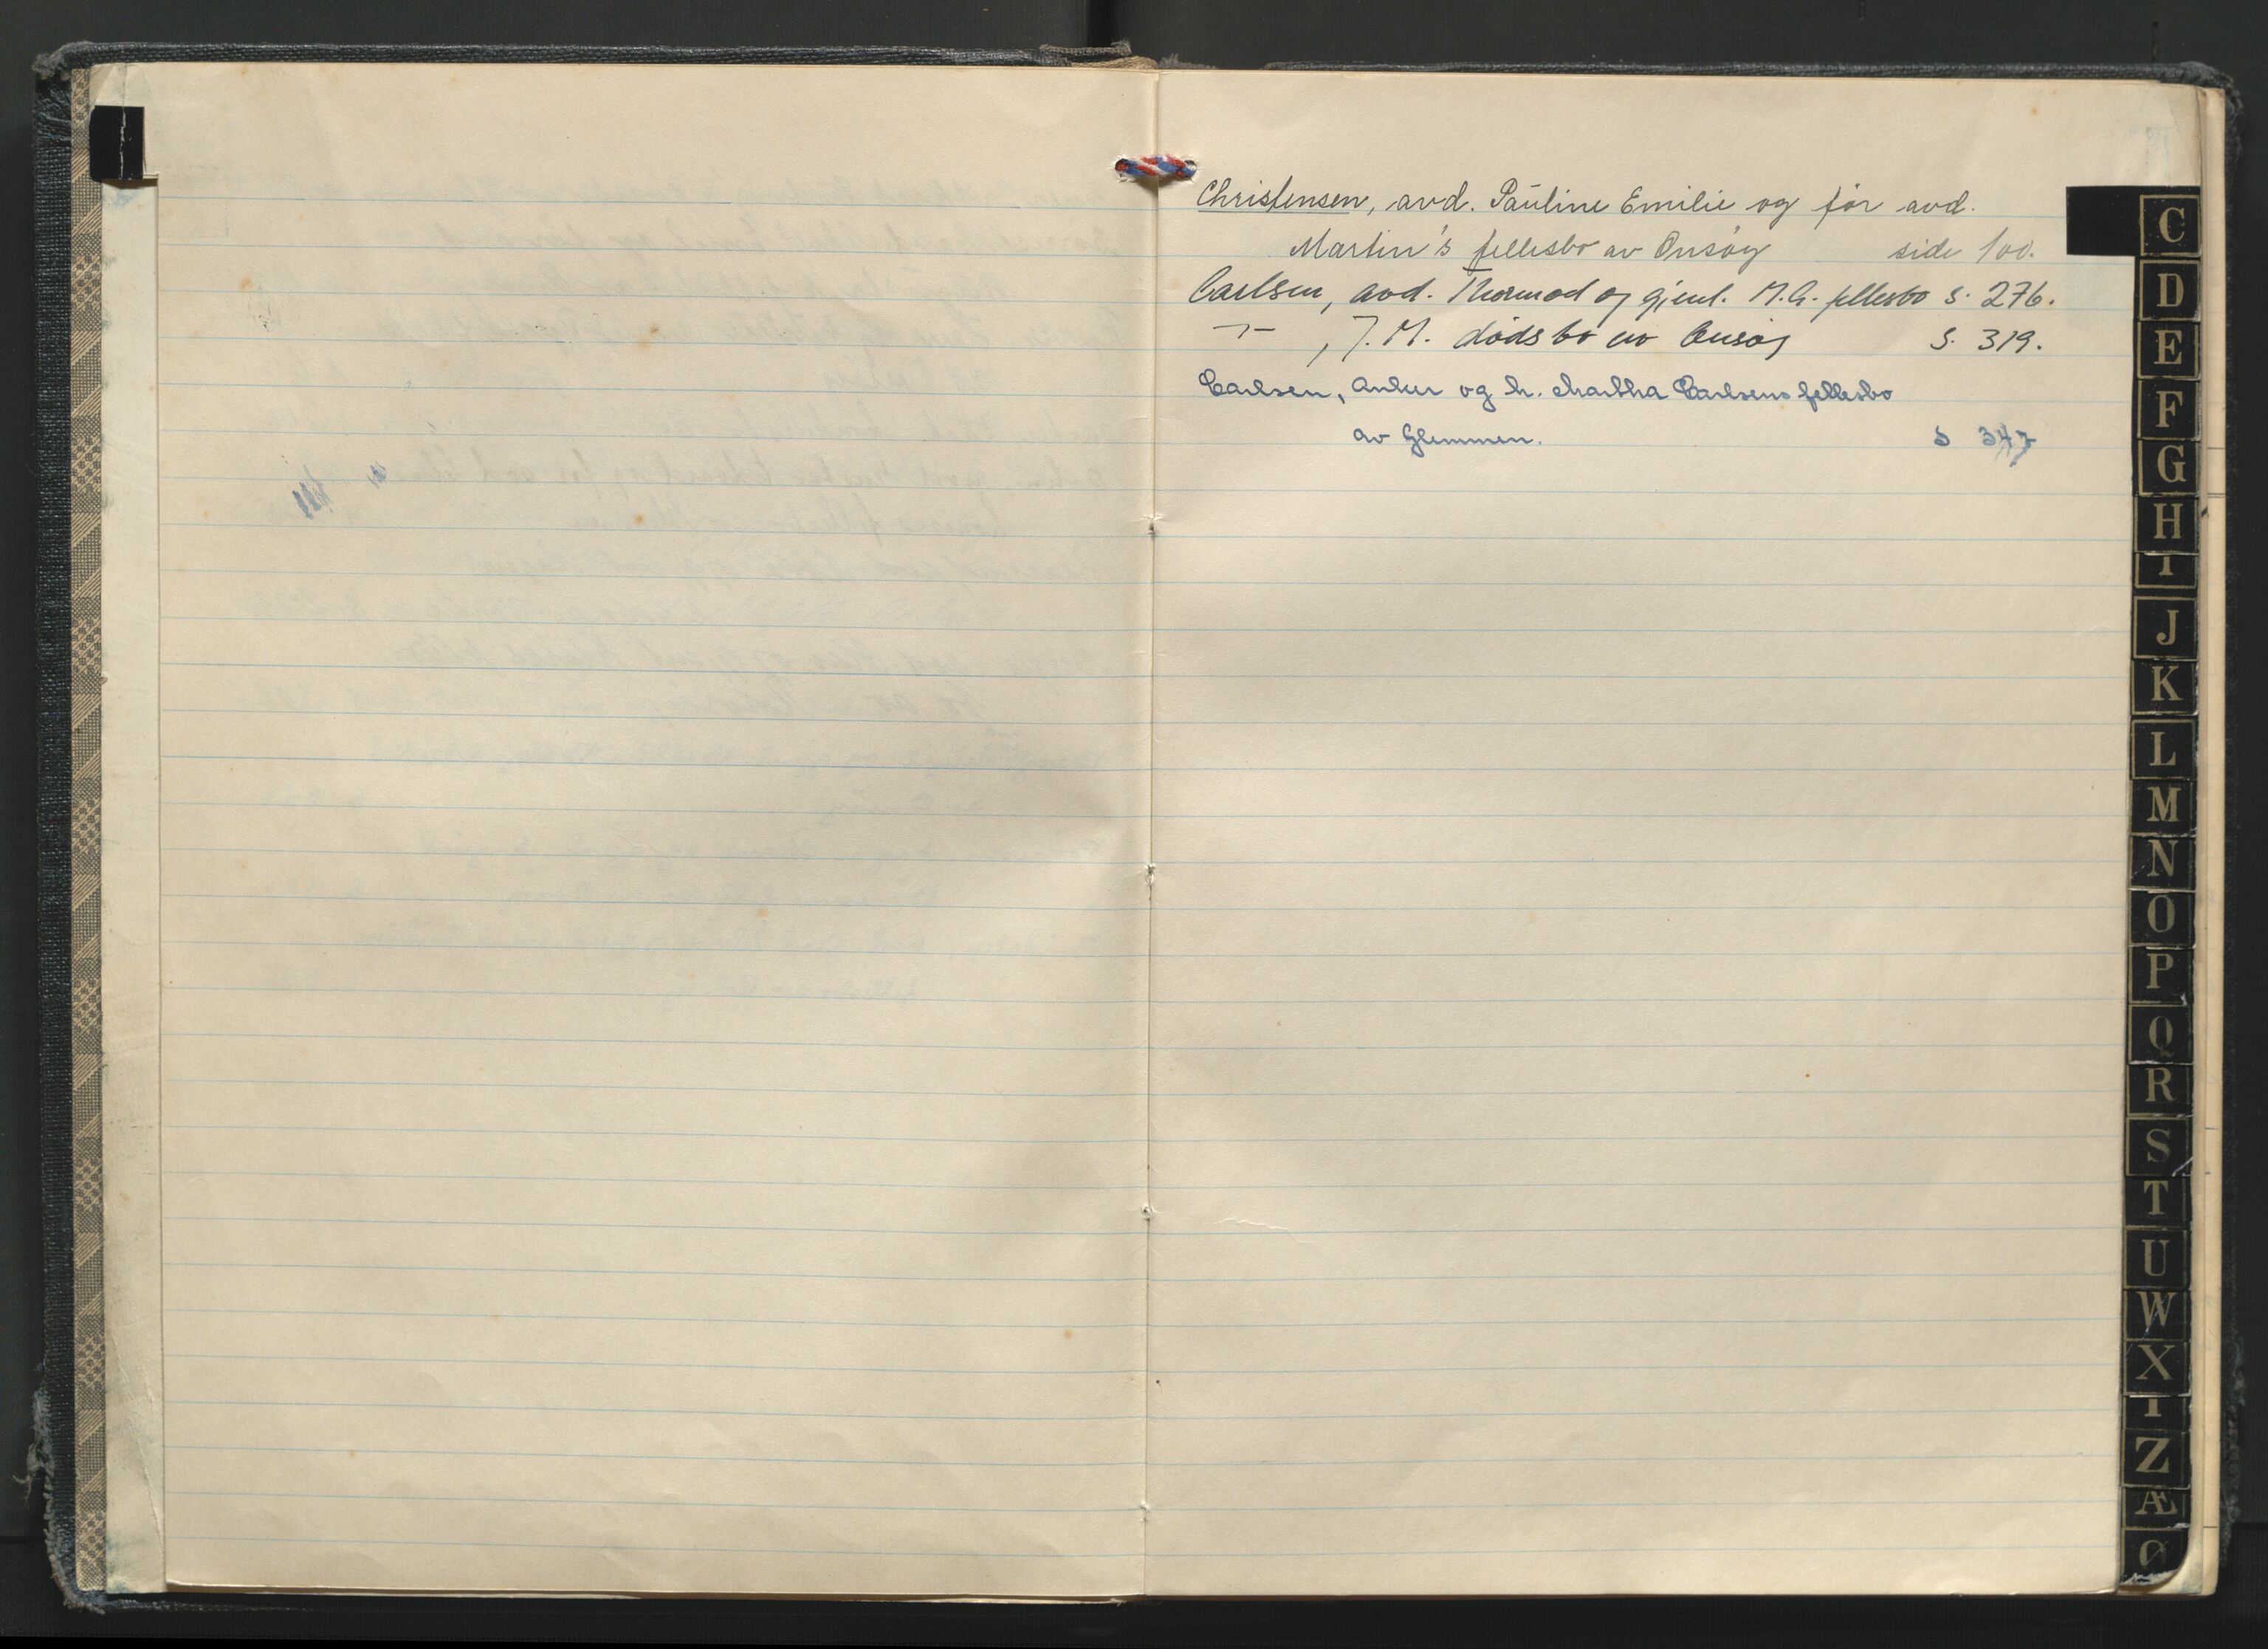 Christensen, avd. Pauline Emilie og før avd.
Martin's fellesbo av Onsøy side 100.
Carlsen, avd. Thormod og gjenl. M.G. fellesbo s. 276.
-"- , J.M. dødsbo av Onsøy S. 319.
Carlsen, Anker og h. Martha Carlsens fellesbo
av Glemmen. S 347
C
D
E
F
G
H
I
J
K
L
M
N
O
P
Q
R
S
T
U
W
X
Z
Æ
Ø